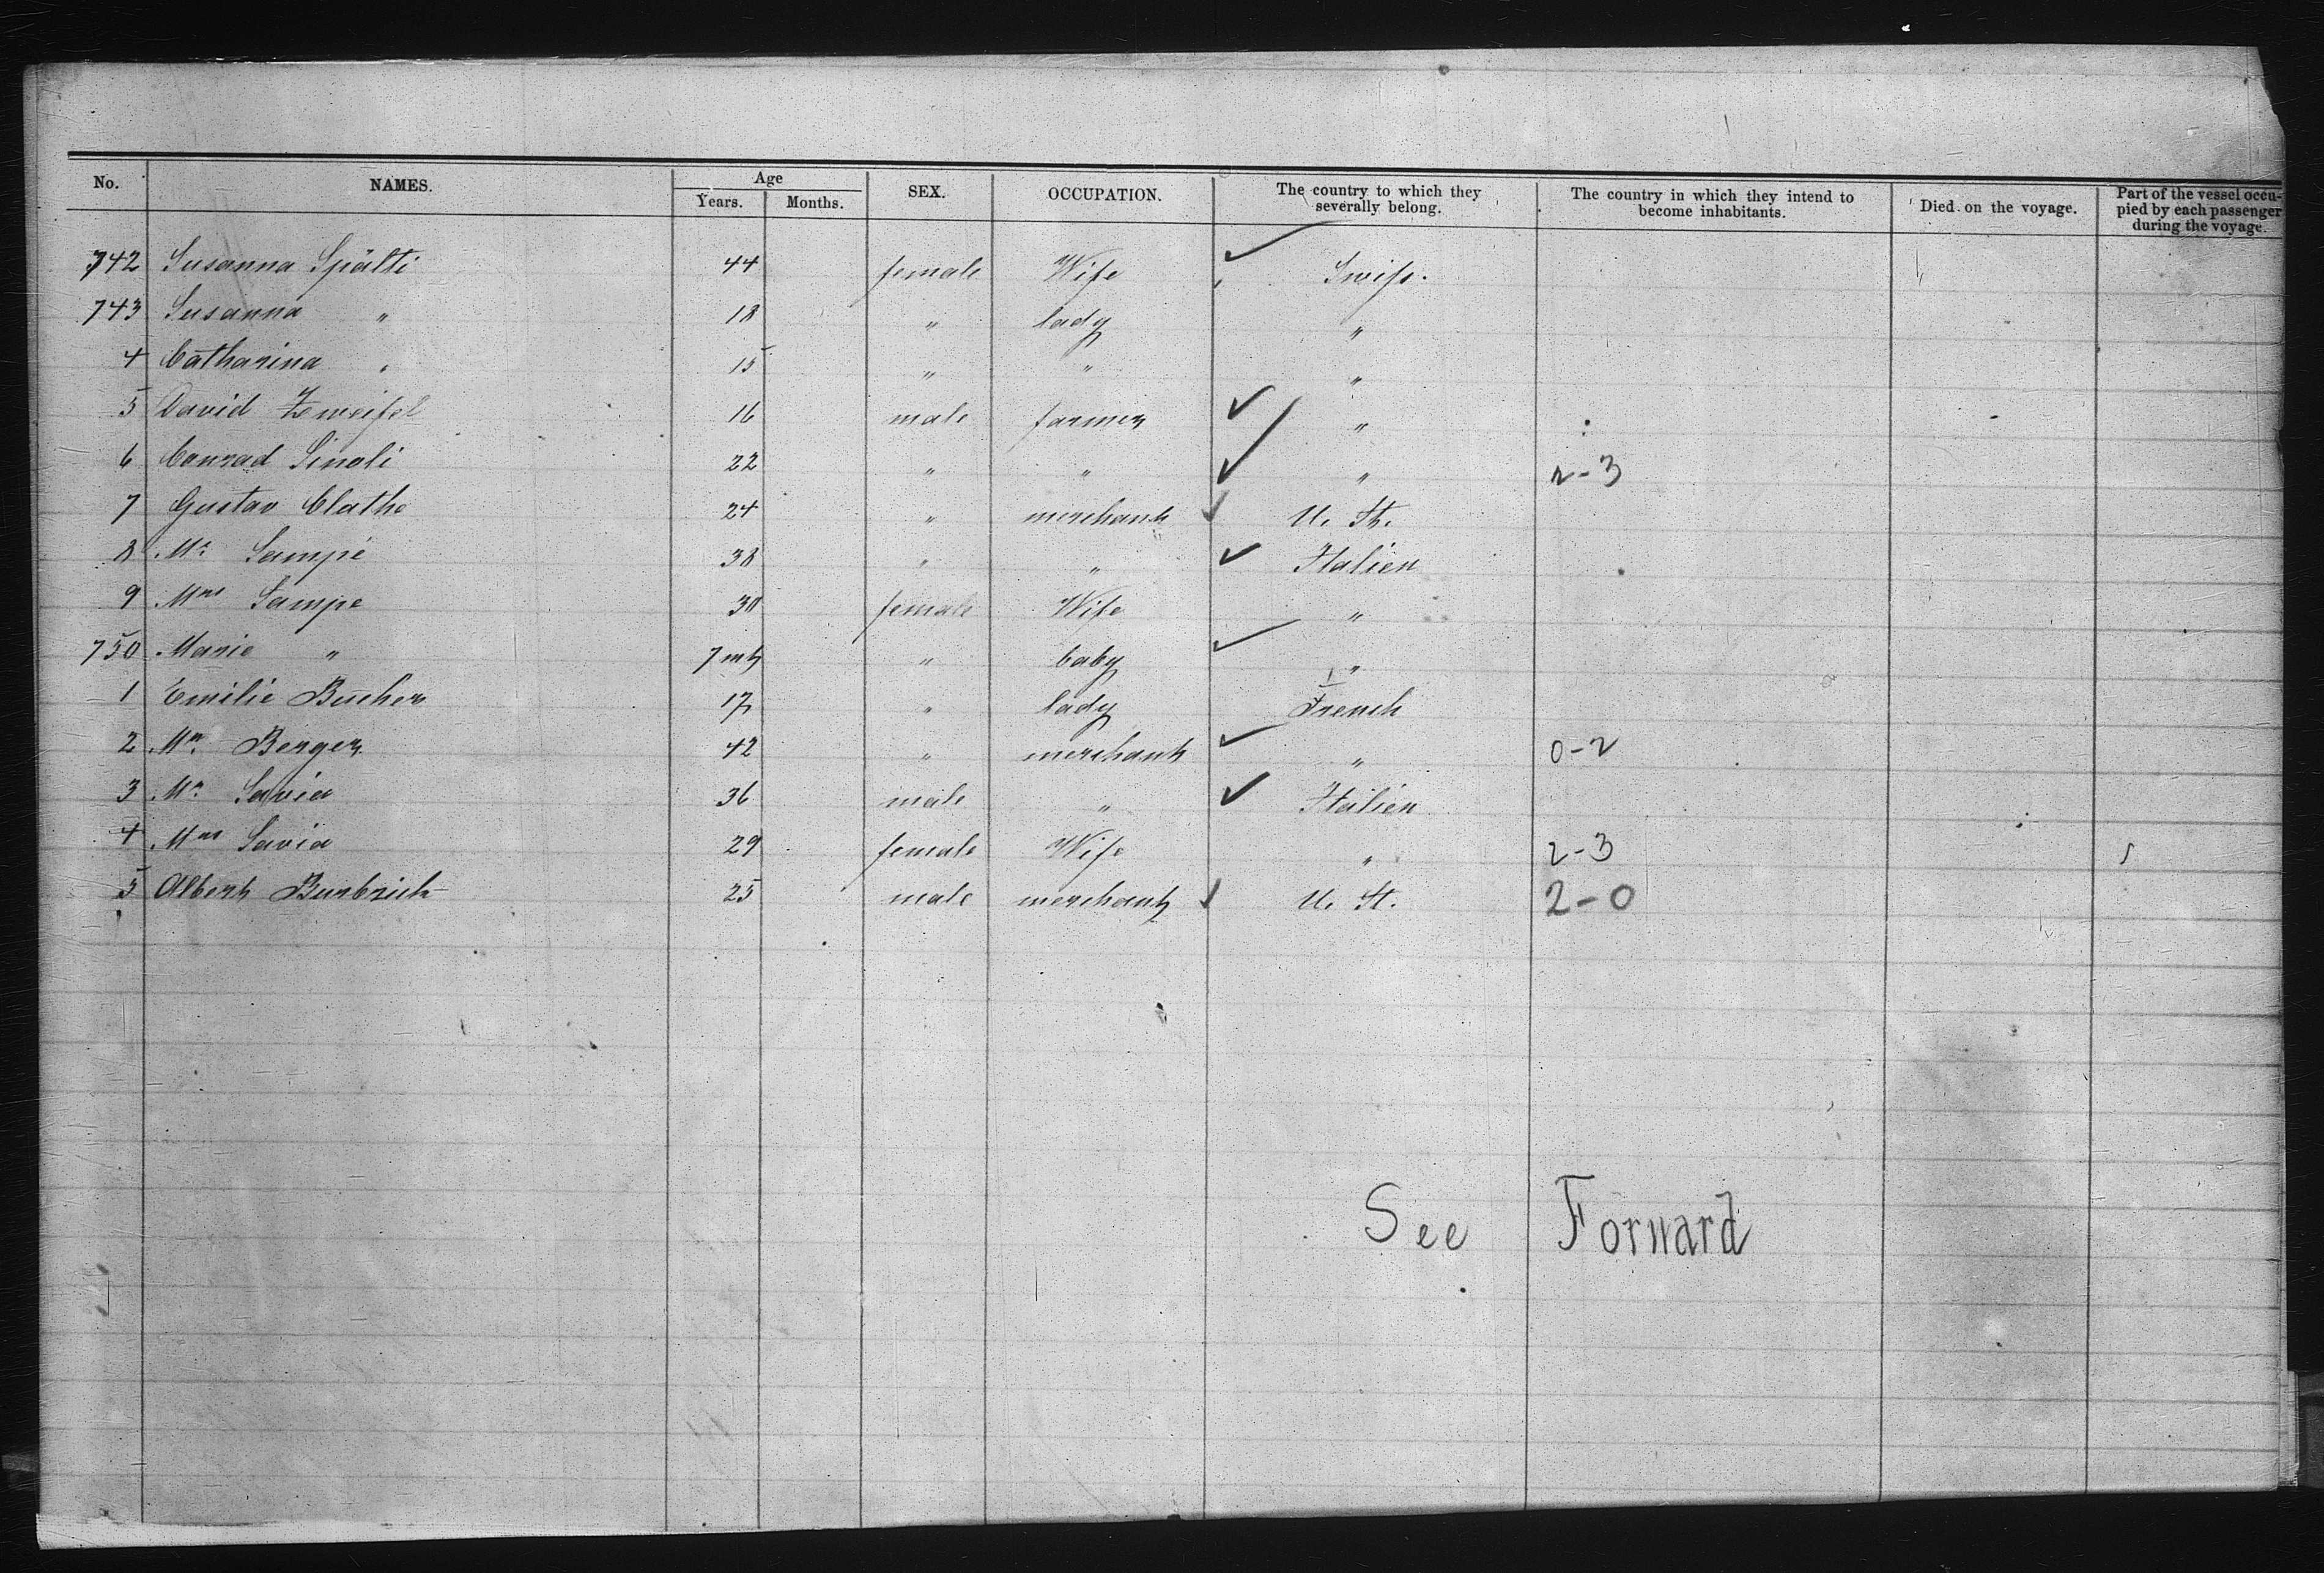 No. NAMES. Age Years. Months. SEX. OCCUPATION. The country to which they severally belong. The country in which they intend to become inhabitants. Died on the voyage. Part of the vessel occupied by each passenger during the voyage.
742 Susanna Spälti 44 female Wife Swiss.
743 Susanna " 18 " lady "
4 Catharina " 15 " " "
5 David Zweifel 16 male farmer "
6 Conrad 22 " " " 2-3
7 Gustav Clathe 24 " merchant U. St.
8 Mr. Sampe 38 " " Italien
9 Mrs Sampe 30 female Wife "
750 Marie " 7 mth " baby "
1 Emilie Bucher 17 " lady French
2 Mr. Berger 42 " merchant " 0-2
3 Mr. Savia 36 male " Italien
4 Mrs Savia 29 female Wife " 2-3
5 Albert 25 male merchant U. St. 2-0
See Forward